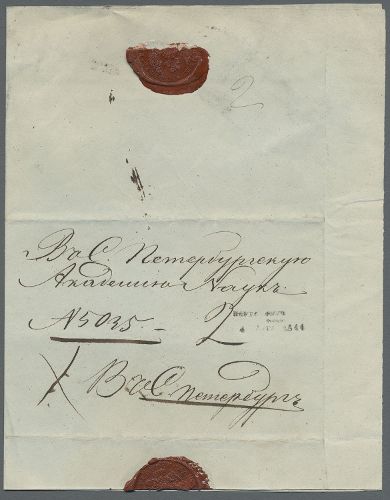 2
Въ С. Петербургскую
Академію Наукъ.
№5035. 2
1844
Въ С. Петербургъ